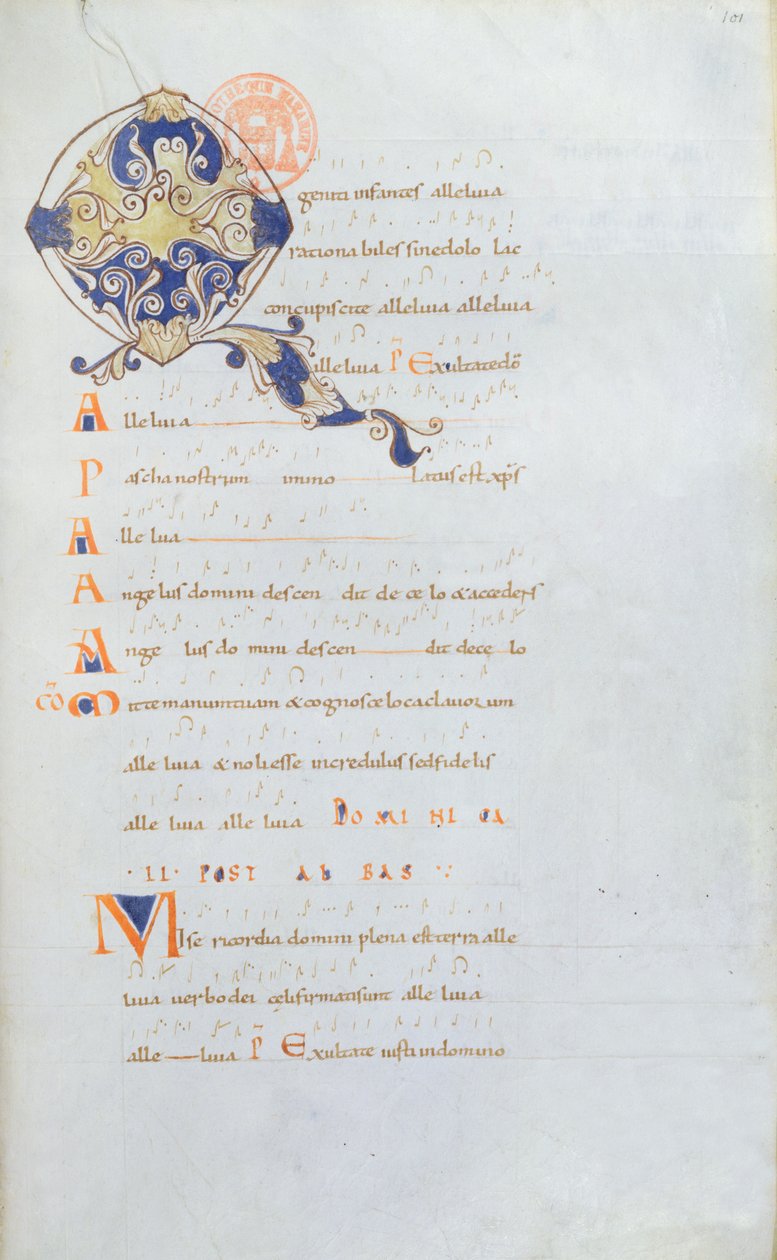 101
BIBLIOTHEQUE MAZARINE
Q geniti infantes alleluia
rationabiles sine dolo lac
concupiscite alleluia alleluia
alleluia P Exultate dō
Alleluia
Pascha nostrum immolatus est xp̄s
Alleluia
Angelus domini descendit de celo & accedens
Angelus domini descendit de cęlo
CŌ Mitte manum tuam & cognosce loca clavorum
alleluia & noli esse incredulus sed fidelis
alleluia alleluia DOMINICA
·II· POST ALBAS
Misericordia domini plena est terra alle
luia verbo dei cęli firmati sunt alleluia
alleluia P Exultate iusti in domino